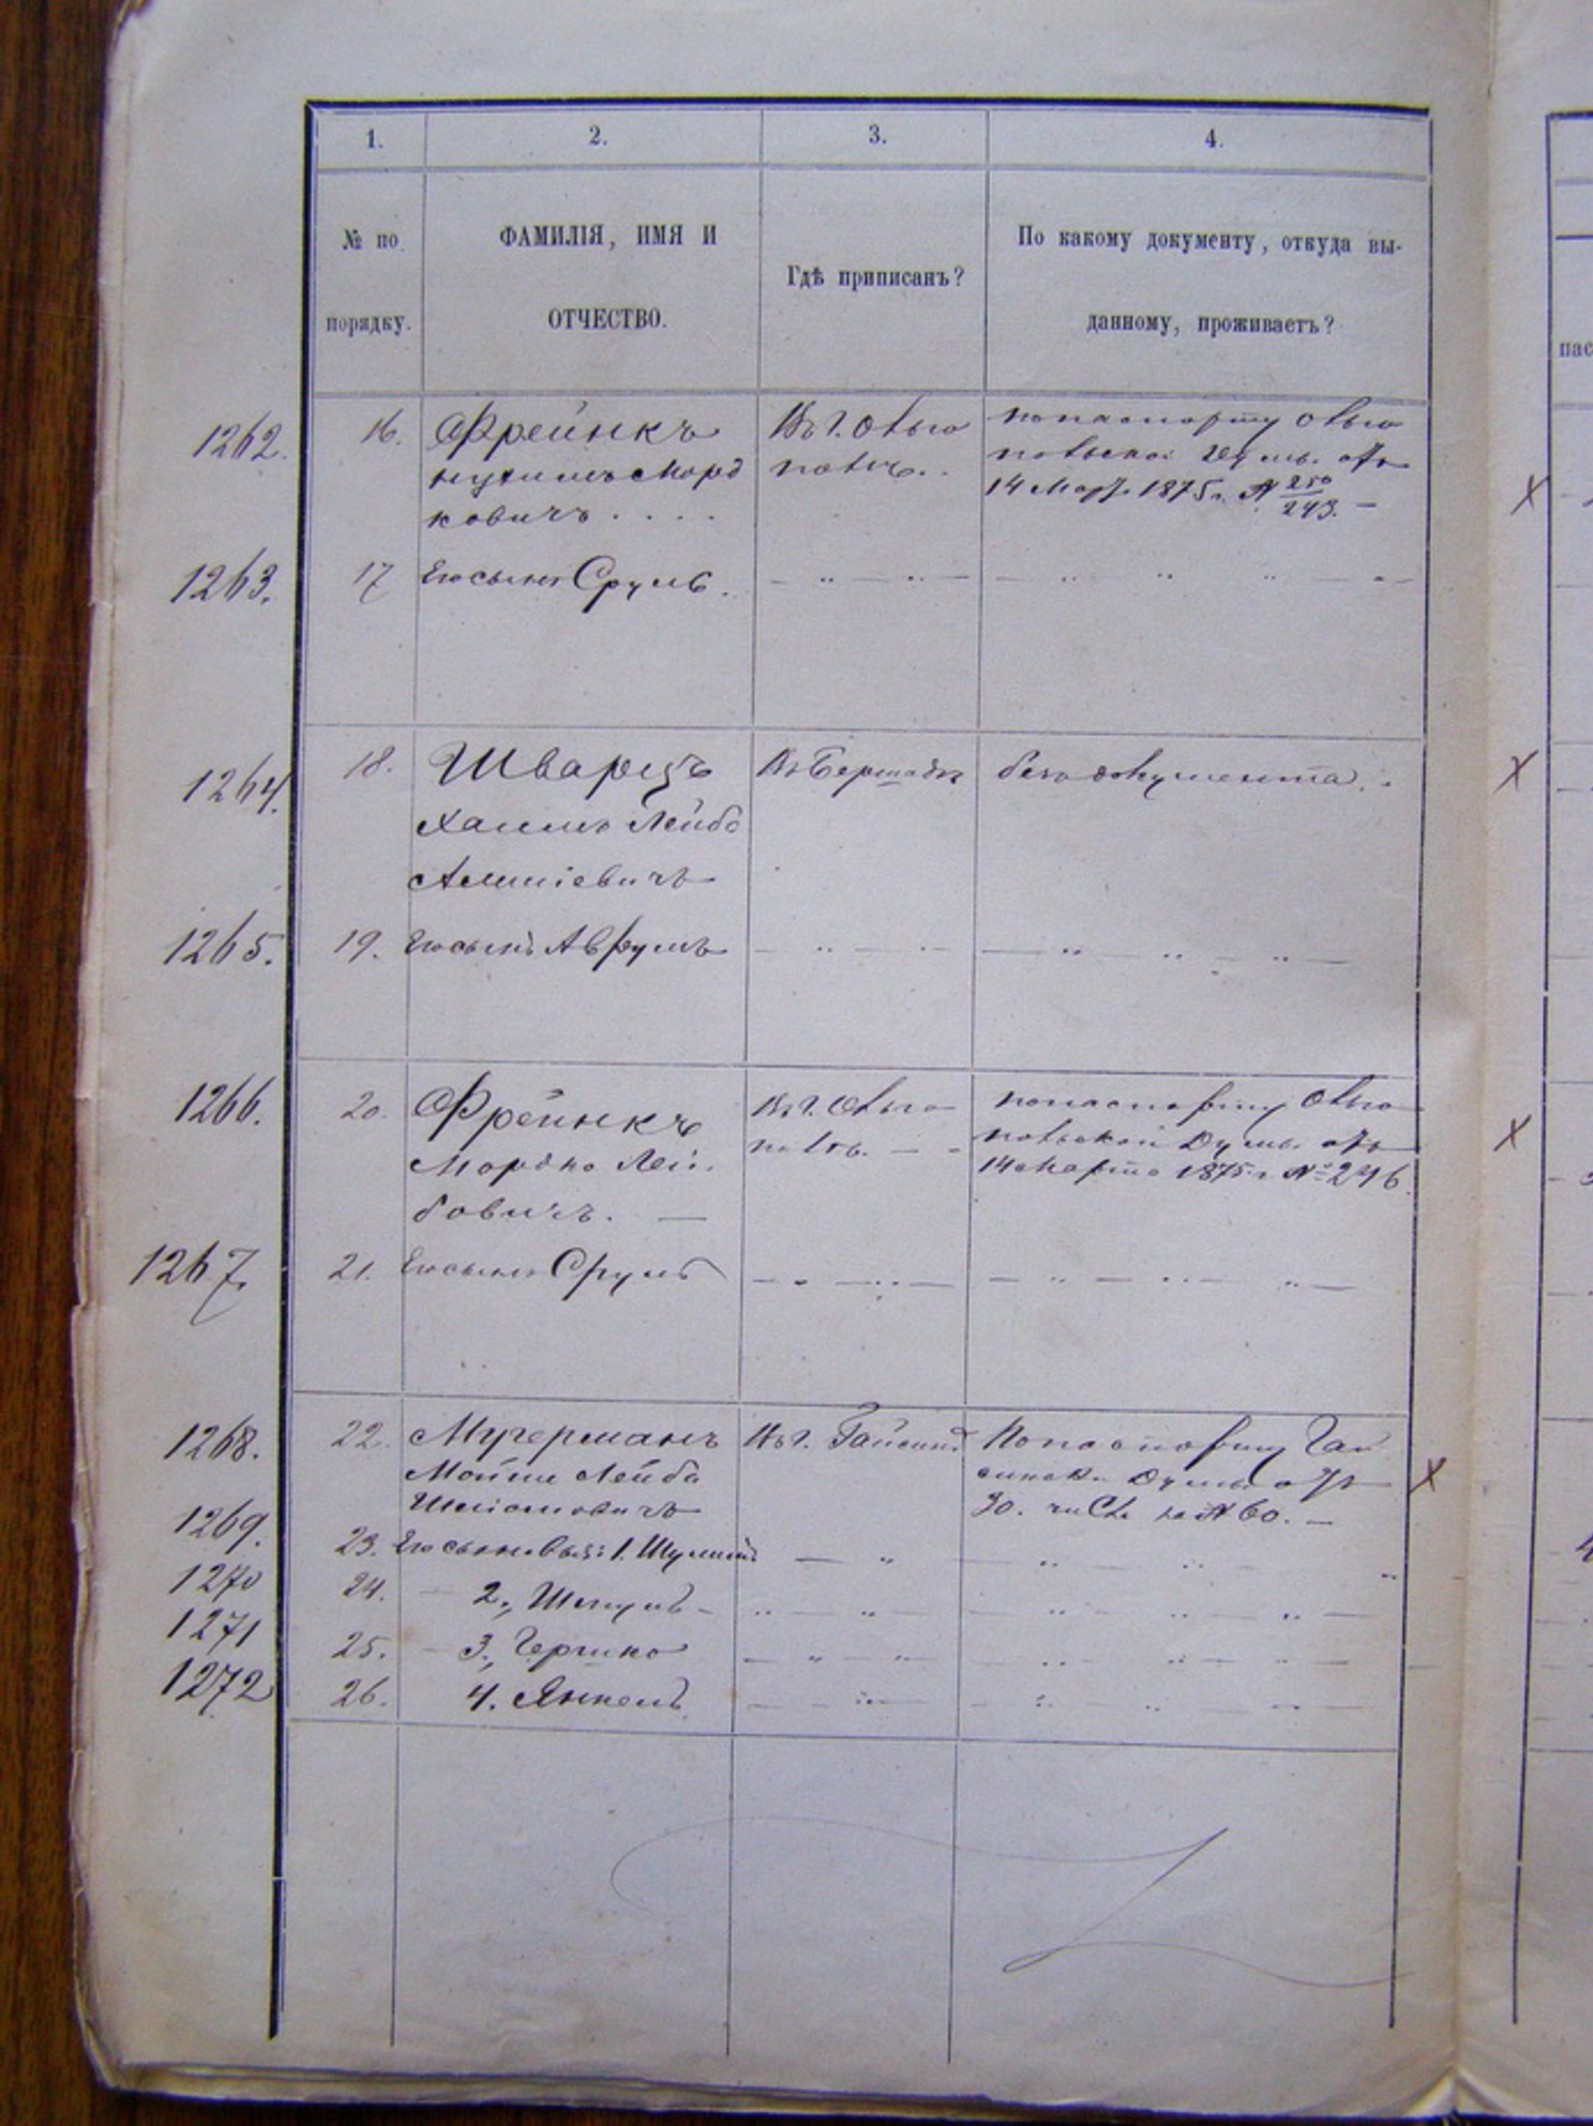 1. 2. 3. 4.
№ по порядку.
ФАМИЛІЯ, ИМЯ И
ОТЧЕСТВО.
Гдѣ приписанъ?
По какому документу, откуда вы-
данному, проживаетъ?
пас
1262. 16. Фрейнкъ Въ г. Ольго по паспорту Ольго
нухимъ Морд поль.. польской Думы отъ
ковичъ . . . . 14 Мар. 1875 г. № 250/243. —
1263. 17 Его сынъ Сруль.
1264. 18. Шварцъ Въ Бершадѣ безъ документа.
Хаимъ Лейба
1265. 19. Его сынъ Аврумъ
1266. 20. Фрейнкъ Въ г. Ольго по паспорту Ольго
Мордко Лей. полѣ. — - польской Думы отъ
бовичъ. — 14 Марта 1875 г. № 246.
1267. 21. Его сынъ Сруль
1268. 22. Мучерманъ Въ г. Гайсинѣ По паспорту Гай
Мойше Лейба синск. Думы отъ
30. за № 60. —
1269. 23. Его сыновья: 1. Шулимъ
1270 24. 2., Шмуль -
1271 25. 3., Гершко
1272 26. 4. Янкель